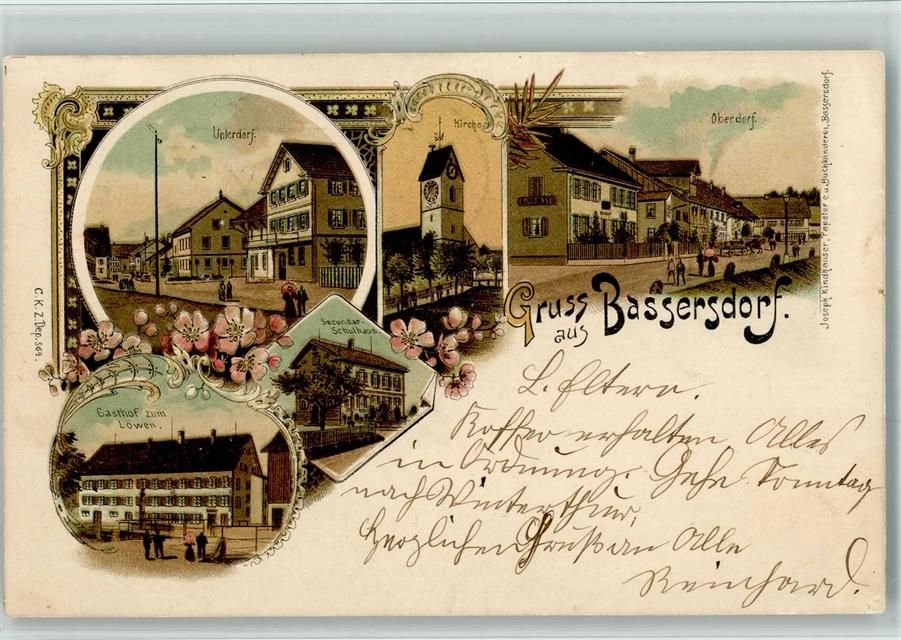 Unterdorf.
Kirche
Oberdorf.
Secundar-
Schulhaus
Gasthof zum
Löwen.
Gruss
aus Bassersdorf.
C. K. Z. Dep. 564.
Joseph Kindhauser, Papeterie u. Buchbinderei, Bassersdorf.
L. Eltern.
Koffer erhalten, Alles
in Ordnung. Gehe Sonntag
nach Winterthur,
Herzlichen Gruß an Alle
Reinhard.